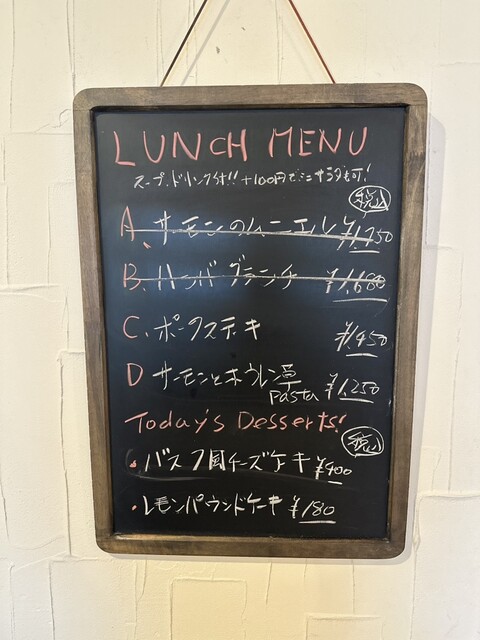 LUNCH MENU
スープ、ドリンク付!! +100円でミニサラダも可!
税込
A、サーモンのムニエル ¥1,750
B、ハンバーグランチ ¥1,680
C、ポークステーキ ¥1,450
D サーモンとホウレン草
pasta ¥1,250
Today's Desserts!
税込
・バスク風チーズケーキ ¥400
・レモンパウンドケーキ ¥180